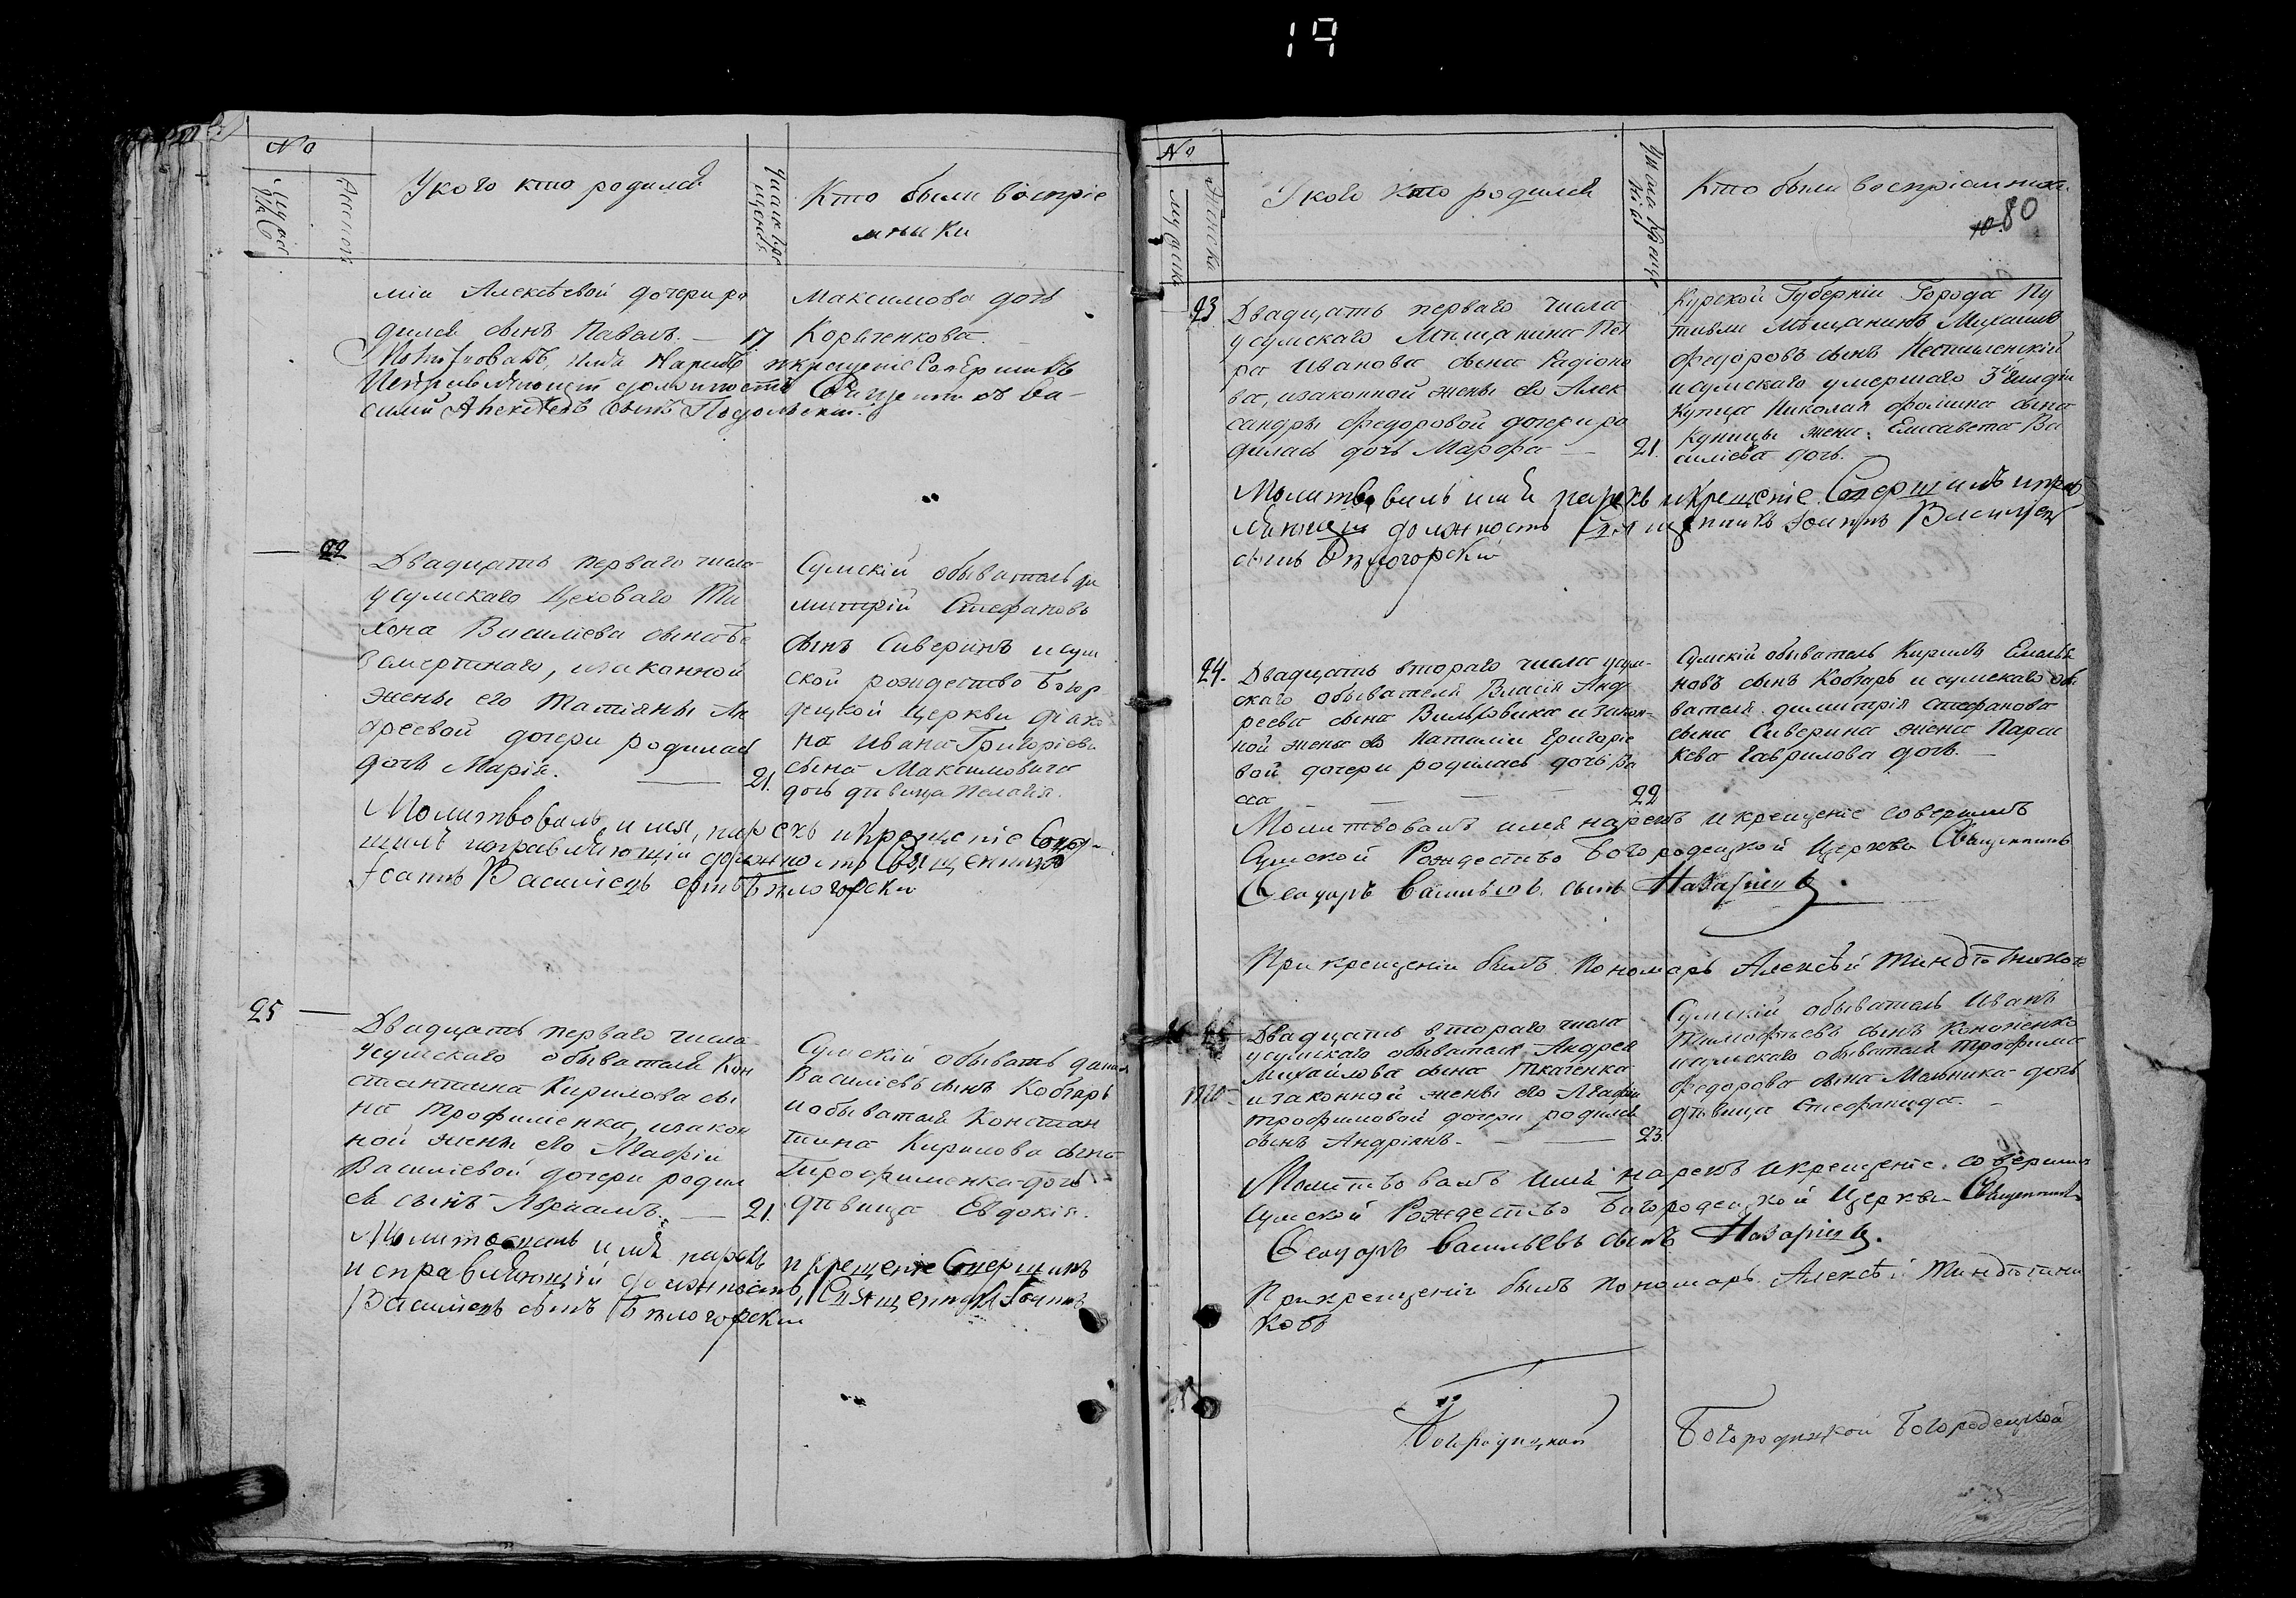 19
№
Мужск
Женск
У кого кто родился
Число кре
щенія
Кто были воспріе
мники
міи Алексѣевой дочери ро
дился сынъ Павелъ. — 17
Максимова дочь
Корытенкова.
Молитвовалъ, имя Нарекъ и крещеніе Совершилъ
Исправляющій должность Священникъ Ва-
силий Алексѣевъ сынъ Подольскій.
22
Двадцать перваго числа
у сумскаго Цеховаго Ти
хона Василіева сына Бе
змертнаго, изаконной
жены его Татіяны Ан
дреевой дочери родилась
дочь Марія. — 21.
Сумскій обыватель ди
митрій Стефановъ
сынъ Сиверинъ и сум
ской рождество Богор
децкой Церкви діако
на Ивана Григоріева
сына Максимовича
дочь дѣвица Пелагія.
Молитвовалъ, имя, нарекъ и крещеніе Совер-
шилъ исправляющій должность Священника
Іоаннъ Василіевъ сынъ Бѣлогорскій
25
Двадцать перваго числа
у сумскаго обывателя Кон
стантина Кирилова сы
на Трофименка, изакон
ной жены его Агафіи
Василіевой дочери родил
ся сынъ Авраамъ. — 21.
Сумскій обыватель
Василіевъ сынъ Кобзарь
и обывателя Констан
тина Кирилова сына
Трофименка дочь
дѣвица Евдокія.
Молитвовалъ имя нарекъ и крещеніе Совершилъ
исправляющій должность Священника Іоаннъ
Василіевъ сынъ Бѣлогорскій
№
Мужска
Женска
У кого кто родился
Число Креще
нія
Кто были воспріемники.
80
23
Двадцать перваго числа
у сумскаго Мѣщанина Пет
ра Иванова сына Радіоно
ва, изаконной жены его Алек
сандры Федоровой дочери ро
дилась дочь Марфа — 21.
Курской Губерніи Города Пу
тивля Мѣщанинъ Михаилъ
Федоровъ сынъ
и сумскаго умершаго 3й гилдіи
Купца Николая Фомина сына
Куницы жена. Елисавета Ва
силіева дочь.
Молитвовалъ имя нарекъ и крещеніе Совершилъ исправ
ляющій должность Священникъ Іоаннъ Василіевъ
сынъ Бѣлогорскій
24.
Двадцать втораго числа у сум-
скаго обывателя Власія Анд
реева сына Вильховика и закон-
ной жены его Наталіи Григоріе
вой дочери родилась дочь Ва
сса — — — 22
Сумскій обыватель Кирилъ Емелья
новъ сынъ Кобзарь и сумскаго обы
вателя димитрія стефанова
сына Сиверина жена Парас
кева Гаврилова дочь. —
Молитвовалъ имя нарекъ и крещеніе совершилъ
Сумской Рождество Богородецкой Церкви Священникъ
Феодоръ Васильевъ сынъ Назарьевъ.
При крещеніи былъ Пономарь Алексѣй
Двадцать втораго числа
у сумскаго обывателя Андрея
Михайлова сына Ткаченка
изаконной жены его Агафіи
трофимовой дочери родился
сынъ Андріянъ. — — 23.
Сумскій обыватель Иванъ
Тимофѣевъ сынъ Кононенко
и сумскаго обывателя Трофима
Федорова сына Мельника дочь
дѣвица Стефанида. —
Молитвовалъ имя нарекъ и крещеніе совершилъ
Сумской Рождество Богородецкой Церкви Священникъ
Феодоръ Васильевъ сынъ Назарьевъ.
При крещеніи былъ Пономарь Алексѣй
ковъ
Богородицкой
Богородицкой Богородецкой